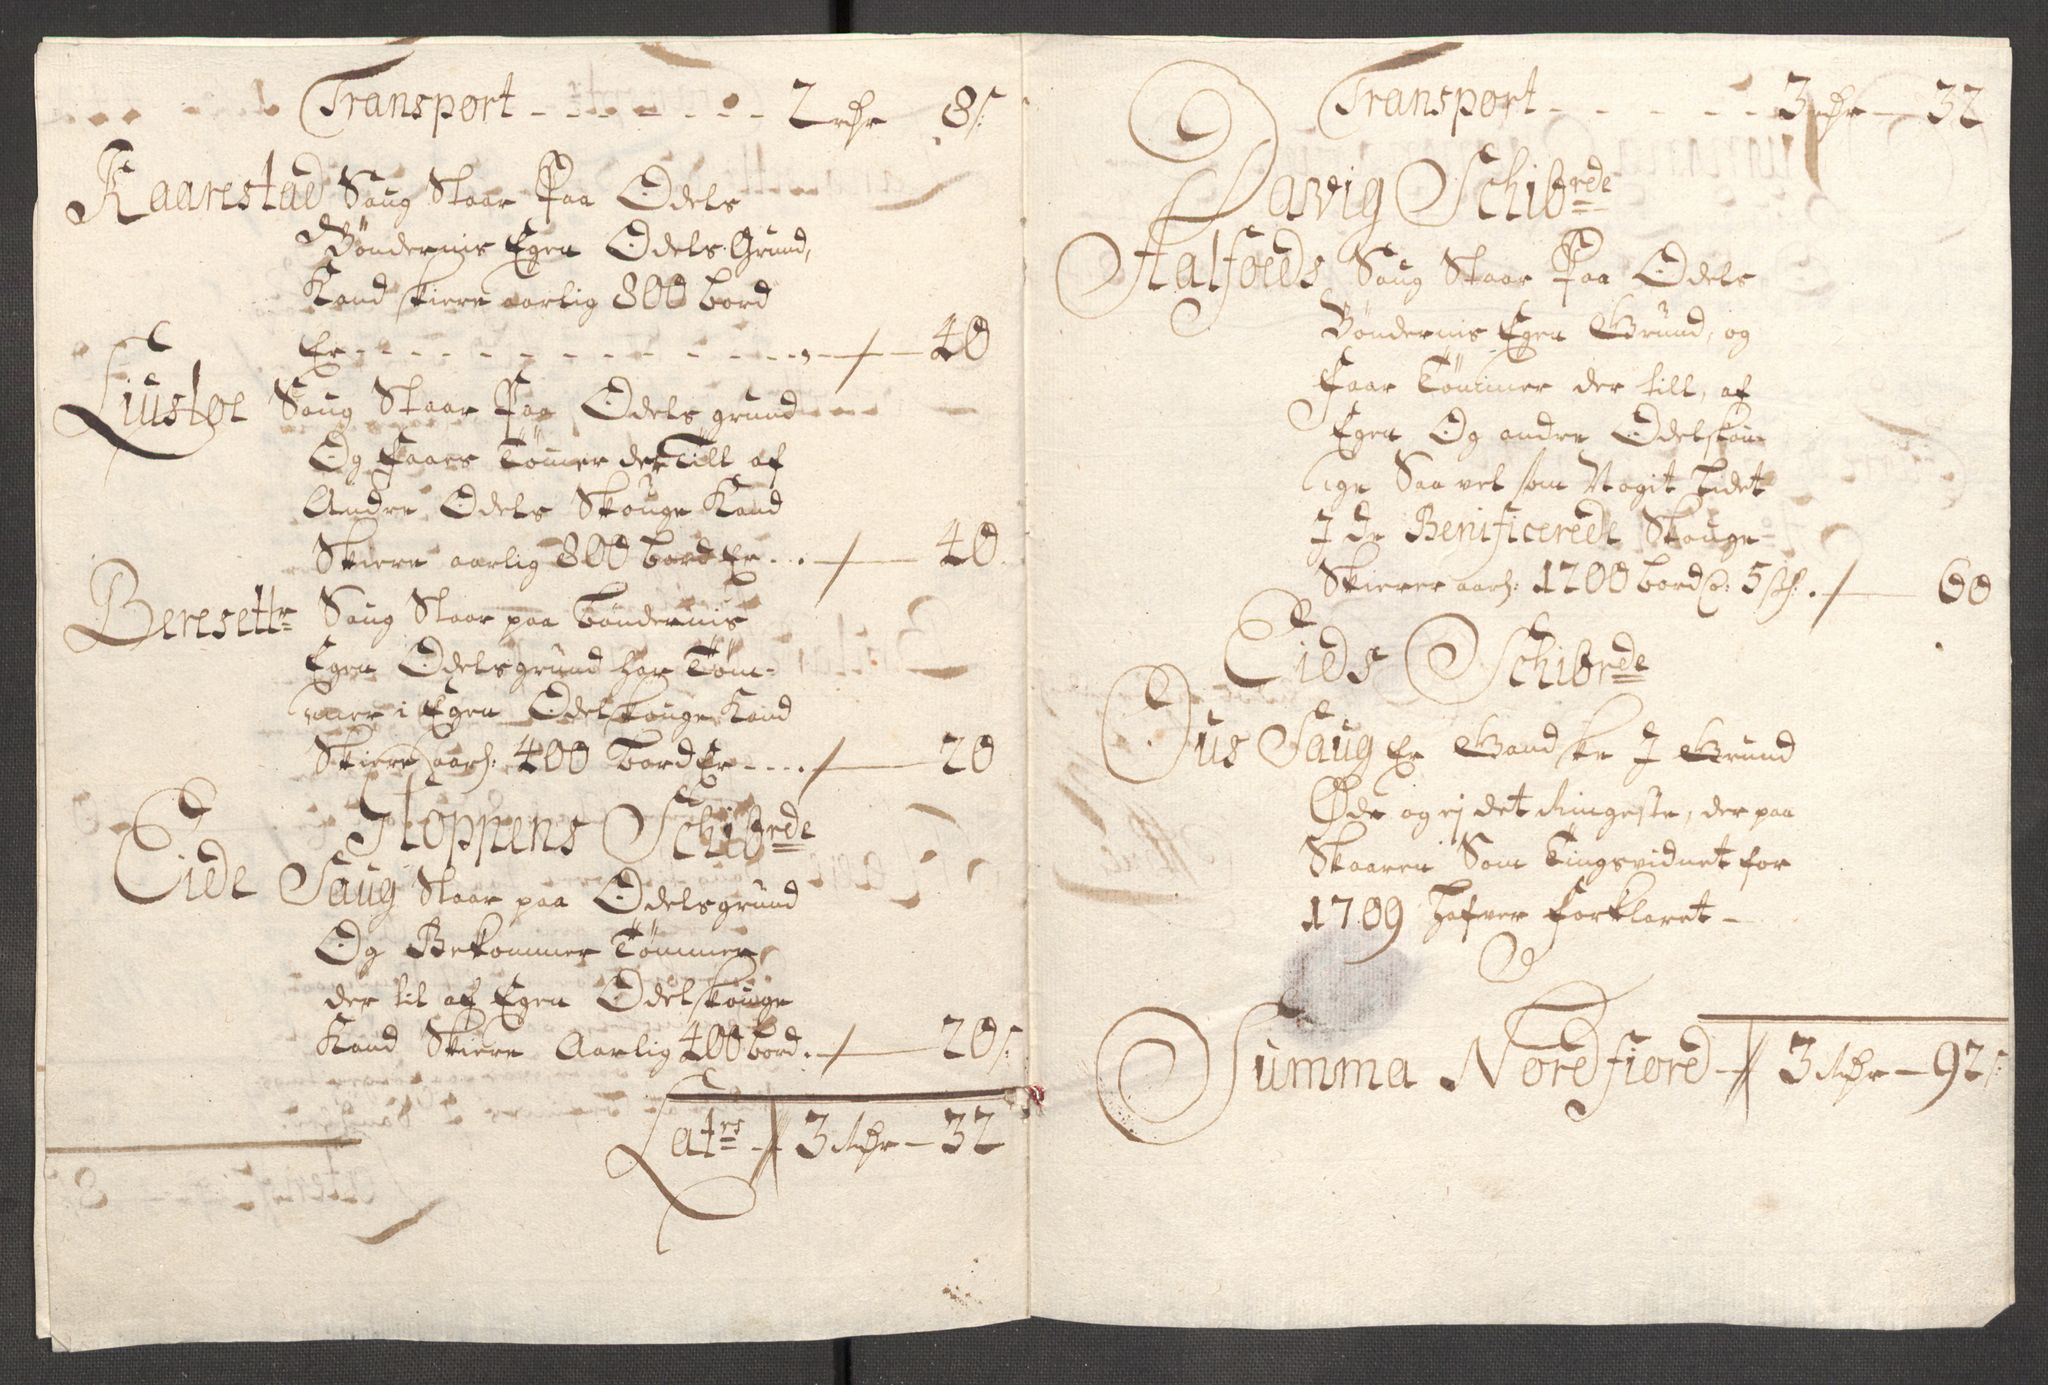 Transport - - - - - - - 2 rdr 8 s:
Kaarestad Saug Staar Paa Odels
Böndernis Egen Odels Grund,
Kand skiere aarlig 800 bord
Er - - - - - - - - - 40
Liustøe Saug Staar Paa Odels grund
Og faaer Tömer der Till af
Andre Odels Skouge Kand
Skiere aarlig 800 bord Er - 40.
Beresettr Saug Staar paa Böndernis
Egen Odelsgrund har Töm-
mer i Egen Odelskouge Kand
Skiere aarl: 400 Bord Er - 20
Hoppens Schibrde
Eide Saug Staar paa Odelsgrund
Og Bekommer Tömmer
der til af Egen Odelskouge
Kand Skiere Aarlig 400 bord. 20 s:
Latrs 3 Rdr - 32
Transport - - - - - 3 rdr - 32
Davig Schibrde
Aalfoeds Saug Staar Paa Odels
Böndernis Egen Grund, og
Faar Tömmer der till, af
Egen Og andre Odelskou-
ge Saa vel som Nogit lidet
I de Benificerede Skouge
Skierer aarl: 1200 bord 5 60
Eids Schibrde
Ous Saug Er Gandske I Grund
Øde og ej det Ringeste, der paa
Skaaren Som Tingsvidnet for
1709 hafver forklaret -
Summa Norefiored - 3 Rdr - 92 s: